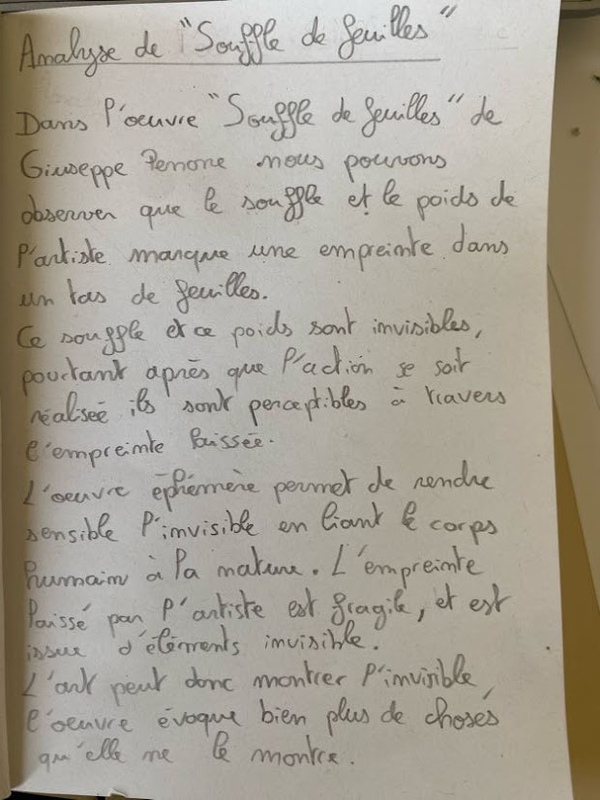 Analyse de "Souffle de feuilles"
Dans l'oeuvre "Souffle de feuilles" de
Giuseppe Penone nous pouvons
observer que le souffle et le poids de
l'artiste marque une empreinte dans
un tas de feuilles.
Ce souffle et ce poids sont invisibles,
pourtant après que l'action se soit
réalisée ils sont perceptibles à travers
l'empreinte laissée.
L'oeuvre éphémère permet de rendre
sensible l'invisible en liant le corps
humain à la nature. L'empreinte
laissé par l'artiste est fragile, et est
issue d'éléments invisible.
L'art peut donc montrer l'invisible,
l'oeuvre évoque bien plus de choses
qu'elle ne le montre.